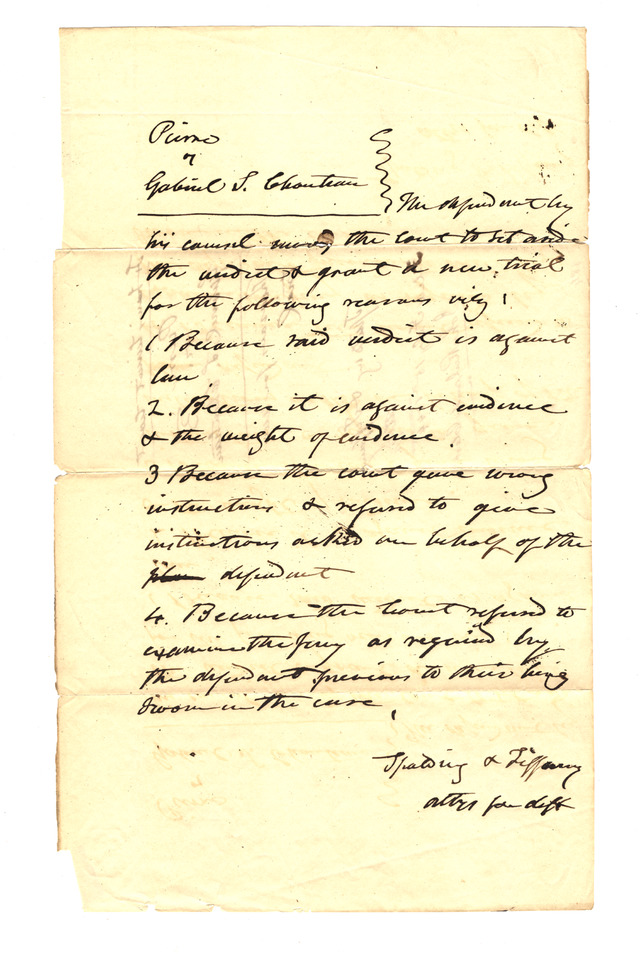 Pierre
v
Gabriel S. Chouteau
The defendant by
his counsel moves the court to set aside
the verdict & grant a new trial
for the following reasons viz:
1 Because said verdict is against
law
2. Because it is against evidence
& the weight of evidence.
3 Because the court gave wrong
instructions & refused to give
instructions asked on behalf of the
defendant
4. Because the Court refused to
examine the jury as required by
the defendant previous to their being
sworn in the case
Spalding & Tiffany
attys for deft